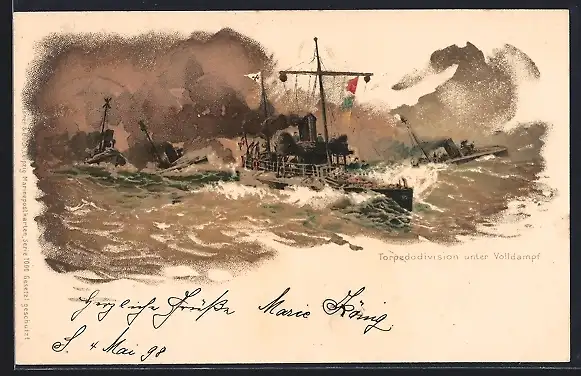 Torpedodivision unter Volldampf
Herzliche Grüße Marie König
S. 4 Mai 98
Marinepostkarten Serie 1001 Gesetzl. geschützt